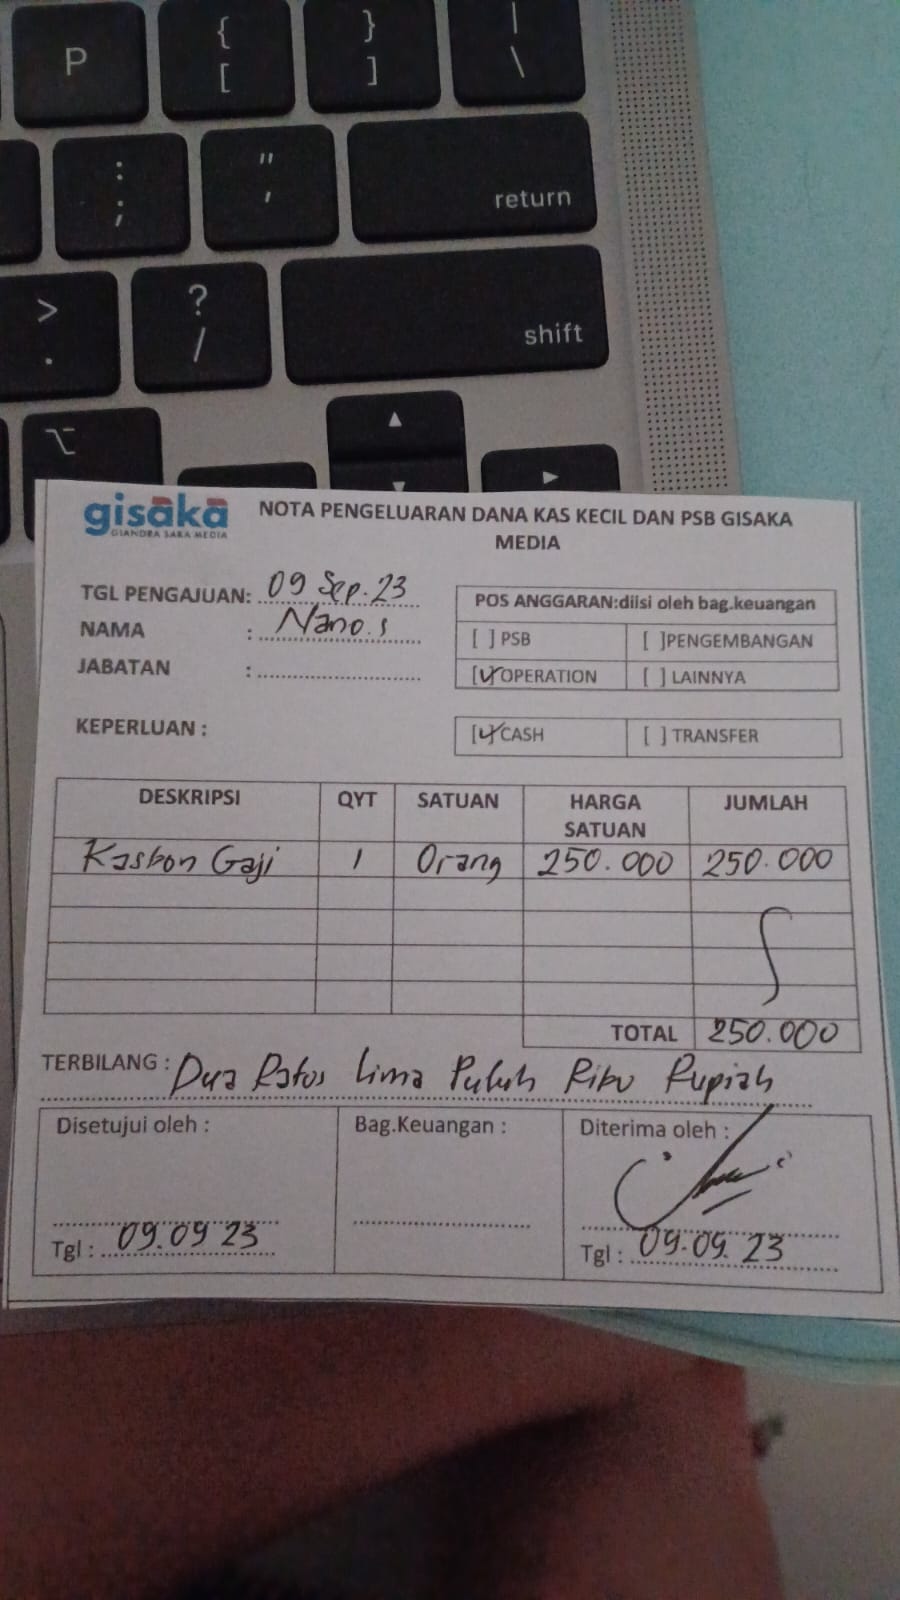 P { [ } ] | \
: ; " ' return
> . ? / shift
⌥ ▲ ▼ ▶
gisaka
GIANDRA SAKA MEDIA
NOTA PENGELUARAN DANA KAS KECIL DAN PSB GISAKA
MEDIA
TGL PENGAJUAN: 09 Sep. 23
NAMA : Nano. s
JABATAN :
POS ANGGARAN:diisi oleh bag.keuangan
[ ] PSB [ ]PENGEMBANGAN
[✓]OPERATION [ ] LAINNYA
KEPERLUAN :
[✓]CASH [ ] TRANSFER
DESKRIPSI QYT SATUAN HARGA SATUAN JUMLAH
Kasbon Gaji 1 Orang 250.000 250.000
TOTAL 250.000
TERBILANG : Dua Ratus Lima Puluh Ribu Rupiah
Disetujui oleh : Bag.Keuangan : Diterima oleh :
Tgl : 09.09 23 Tgl : 09.09. 23